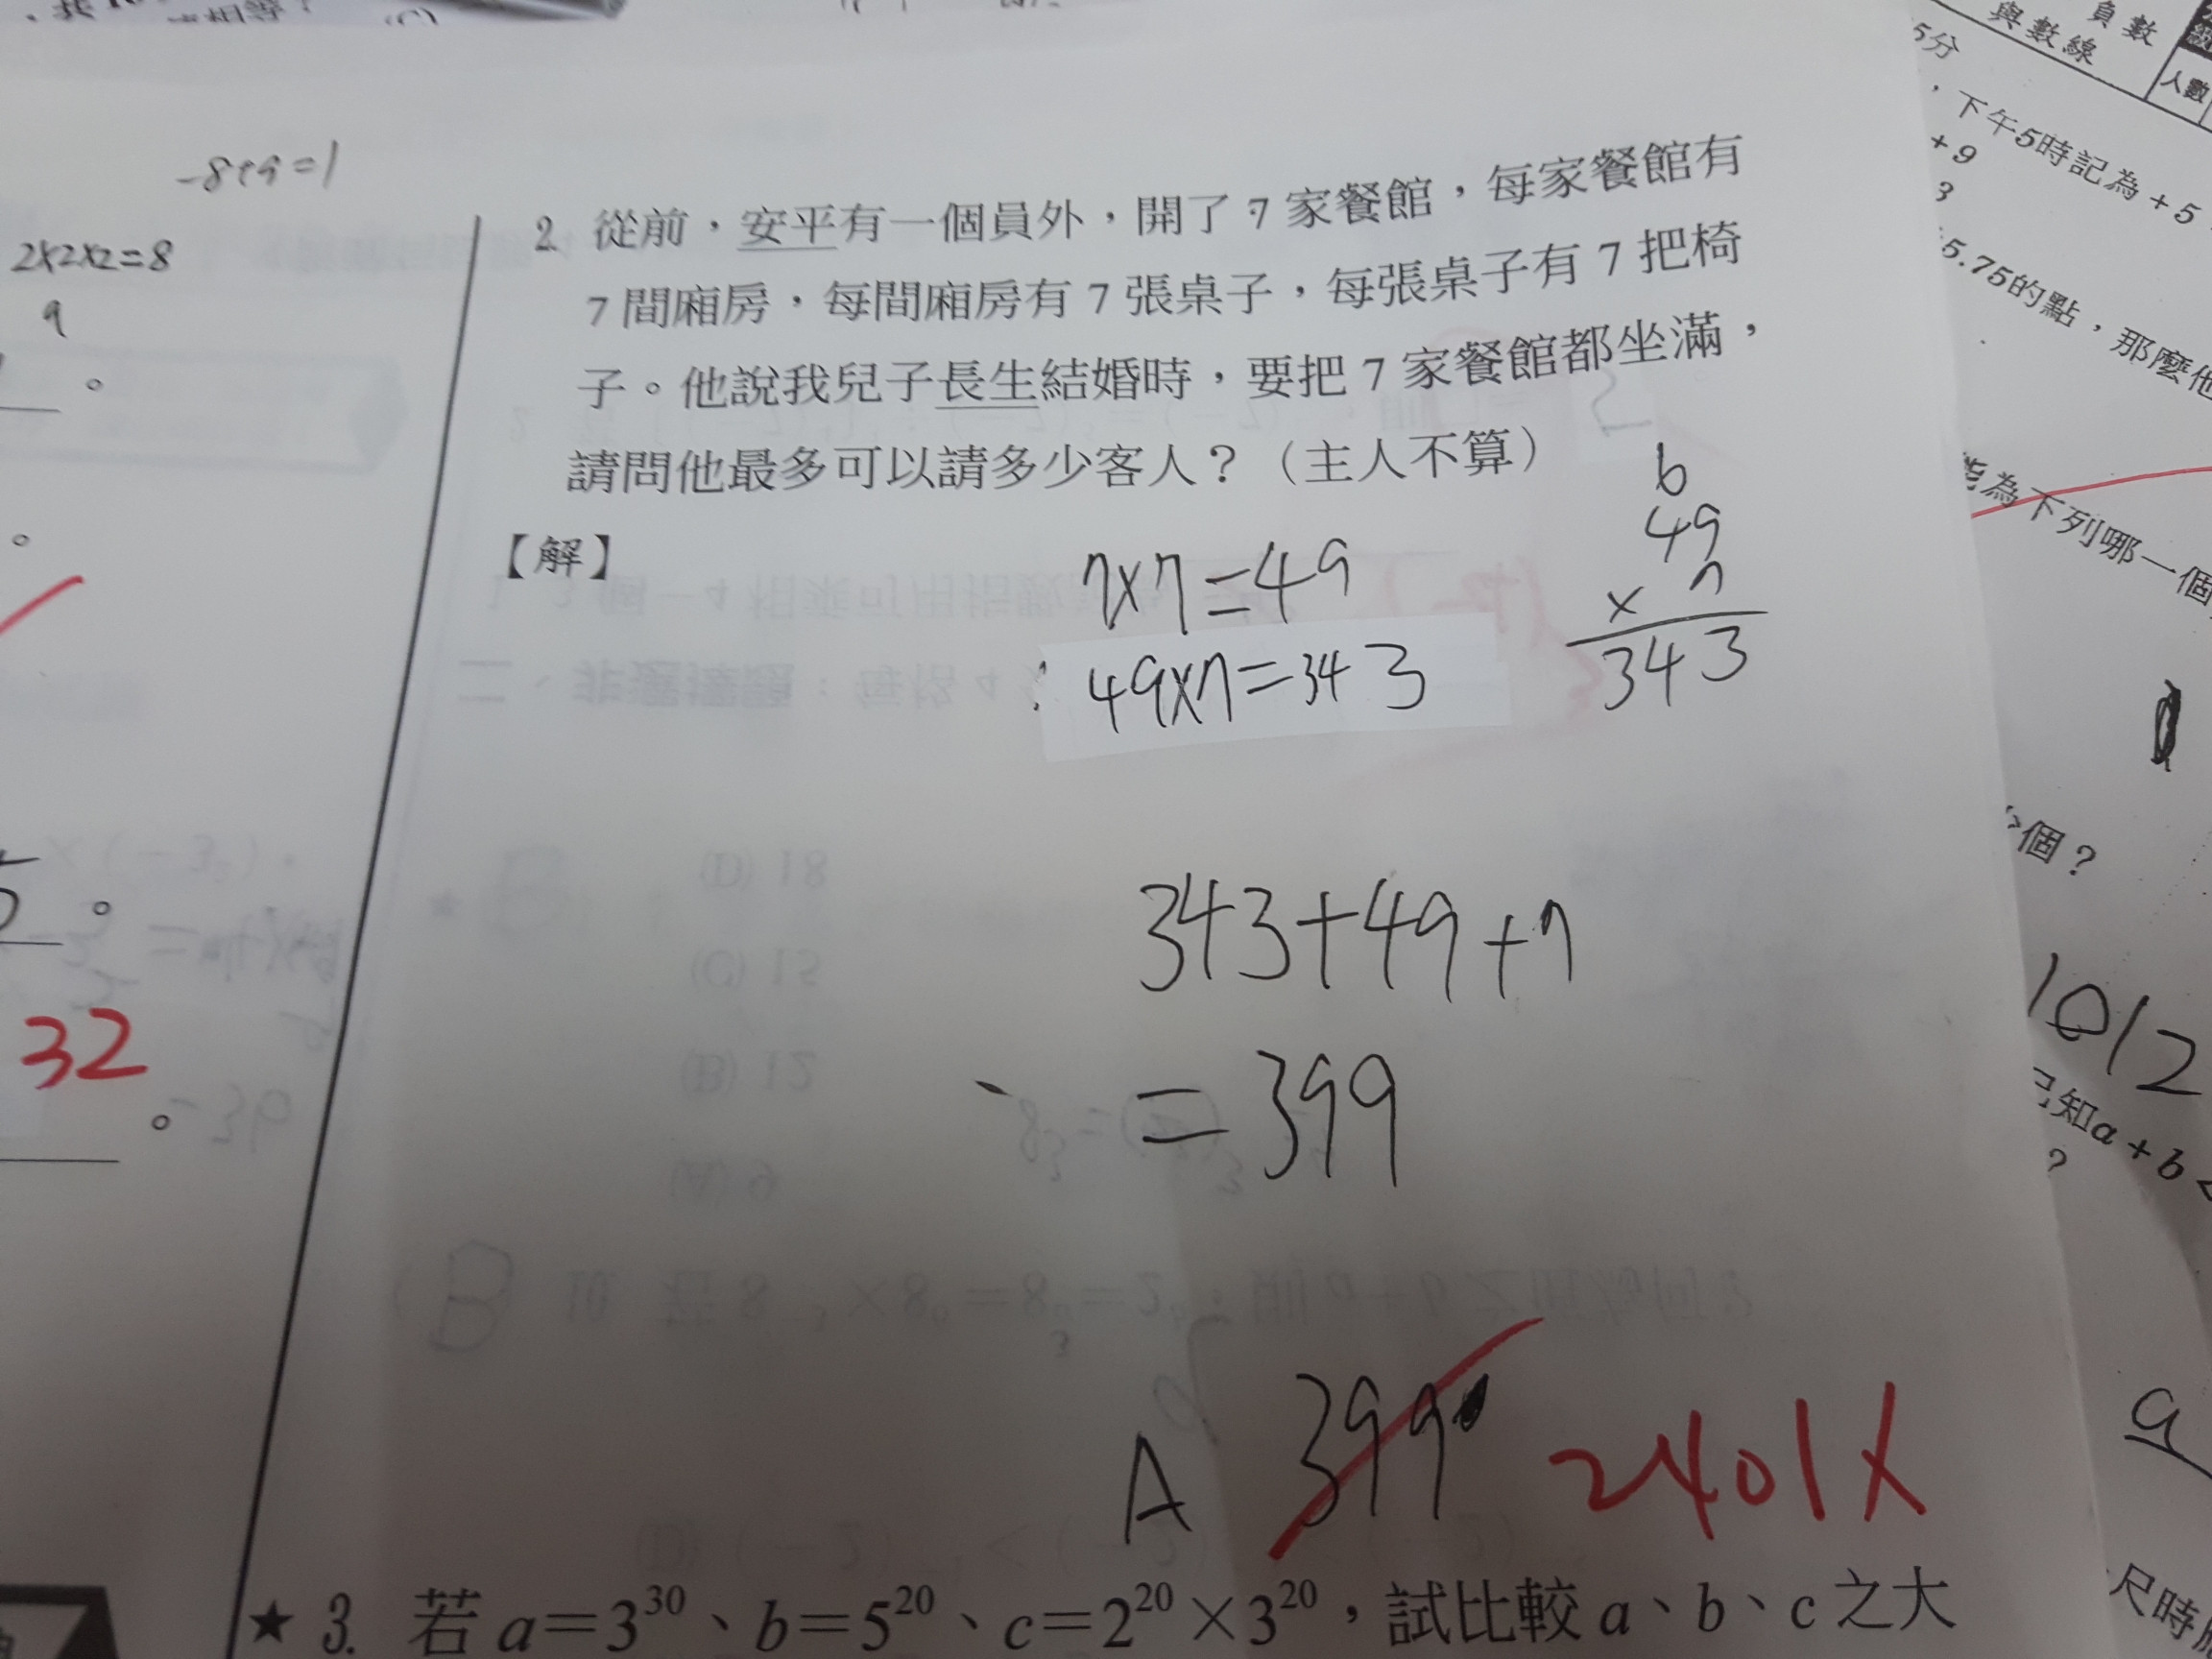 -8+9=1
2×2×2=8
9
2. 從前，安平有一個員外，開了 7 家餐館，每家餐館有
7 間廂房，每間廂房有 7 張桌子，每張桌子有 7 把椅
子。他說我兒子長生結婚時，要把 7 家餐館都坐滿，
請問他最多可以請多少客人？（主人不算）
【解】
7×7=49
49×7=343
6
49
× 7
343
343+49+7
=399
A 399 2401
32
★ 3. 若 a＝3³⁰、b＝5²⁰、c＝2²⁰×3²⁰，試比較 a、b、c 之大
負數
與數線
人數
5分
，下午5時記為+5
+9
3
5.75的點，那麼他
為下列哪一個
個？
1012
已知a+b
?
a
尺時